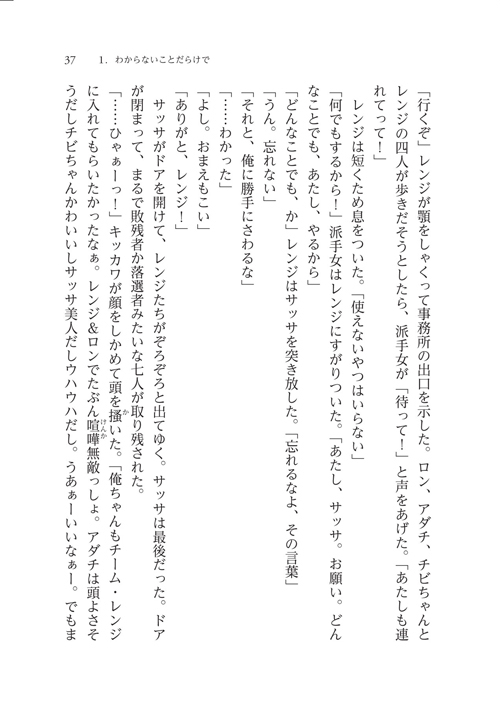 37
1．わからないことだらけで
「行くぞ」レンジが顎をしゃくって事務所の出口を示した。ロン、アダチ、チビちゃんと
レンジの四人が歩きだそうとしたら、派手女が「待って！」と声をあげた。「あたしも連
れてって！」
レンジは短くため息をついた。「使えないやつはいらない」
「何でもするから！」派手女はレンジにすがりついた。「あたし、サッサ。お願い。どん
なことでも、あたし、やるから」
「どんなことでも、か」レンジはサッサを突き放した。「忘れるなよ、その言葉」
「うん。忘れない」
「それと、俺に勝手にさわるな」
「……わかった」
「よし。おまえもこい」
「ありがと、レンジ！」
サッサがドアを開けて、レンジたちがぞろぞろと出てゆく。サッサは最後だった。ドア
が閉まって、まるで敗残者か落選者みたいな七人が取り残された。
「……ひゃぁーっ！」キッカワが顔をしかめて頭を掻いた。「俺ちゃんもチーム・レンジ
に入れてもらいたかったなぁ。レンジ＆ロンでたぶん喧嘩無敵っしょ。アダチは頭よさそ
うだしチビちゃんかわいいしサッサ美人だしウハウハだし。うあぁーいいなぁー。でもま